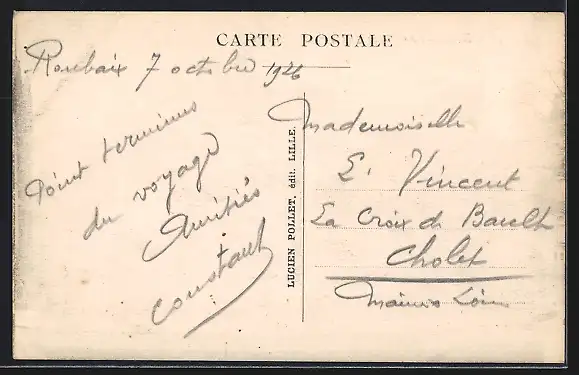 CARTE POSTALE
Roubaix 7 octobre 1926
Point terminus
du voyage
Amitiés
Constant
LUCIEN POLLET, édit. LILLE.
Mademoiselle
E. Vincent
La Croix de
Cholet
Maine Loire